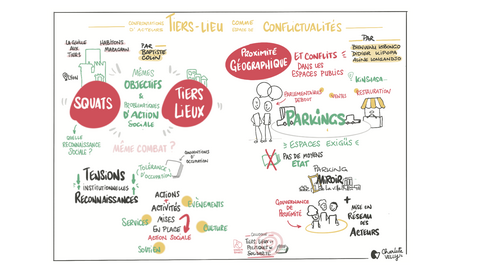 CONFRONTATIONS D'ACTEURS
TIERS-LIEU
COMME
CONFLICTUALITÉS
LA GRILLE AUX TIERS
HABITONS MARAGHAN
PAR BAPTISTE COLIN
LYON
SQUATS
MÊMES
OBJECTIFS
&
D'ACTION
SOCIALE
TIERS
LIEUX
QUELLE
RECONNAISSANCE
SOCIALE ?
MÊME COMBAT ?
TOLÉRANCE
D'OCCUPATION
CONVENTIONS
D'OCCUPATION
TENSIONS
INSTITUTIONNELLES
RECONNAISSANCES
ACTIONS
+
ACTIVITÉS
MISES
EN PLACE
ACTION SOCIALE
ÉVÈNEMENTS
SERVICES
CULTURE
SOUTIEN
PROXIMITÉ
GÉOGRAPHIQUE
ET CONFLITS
DANS LES
ESPACES PUBLICS
PAR
KINSHASA
PARLEMENTAIRES
DEBOUT
VENTES
RESTAURATION
PARKINGS
ESPACES EXIGÜS
PAS DE MOYENS
ÉTAT
PARKING
MIROIR
DE LA VILLE
GOUVERNANCE
DE PROXIMITÉ
+
MISE EN
RÉSEAU
DES
ACTEURS
COLLOQUE
TIERS LIEUX ET
SOLIDARITÉ
Charlotte